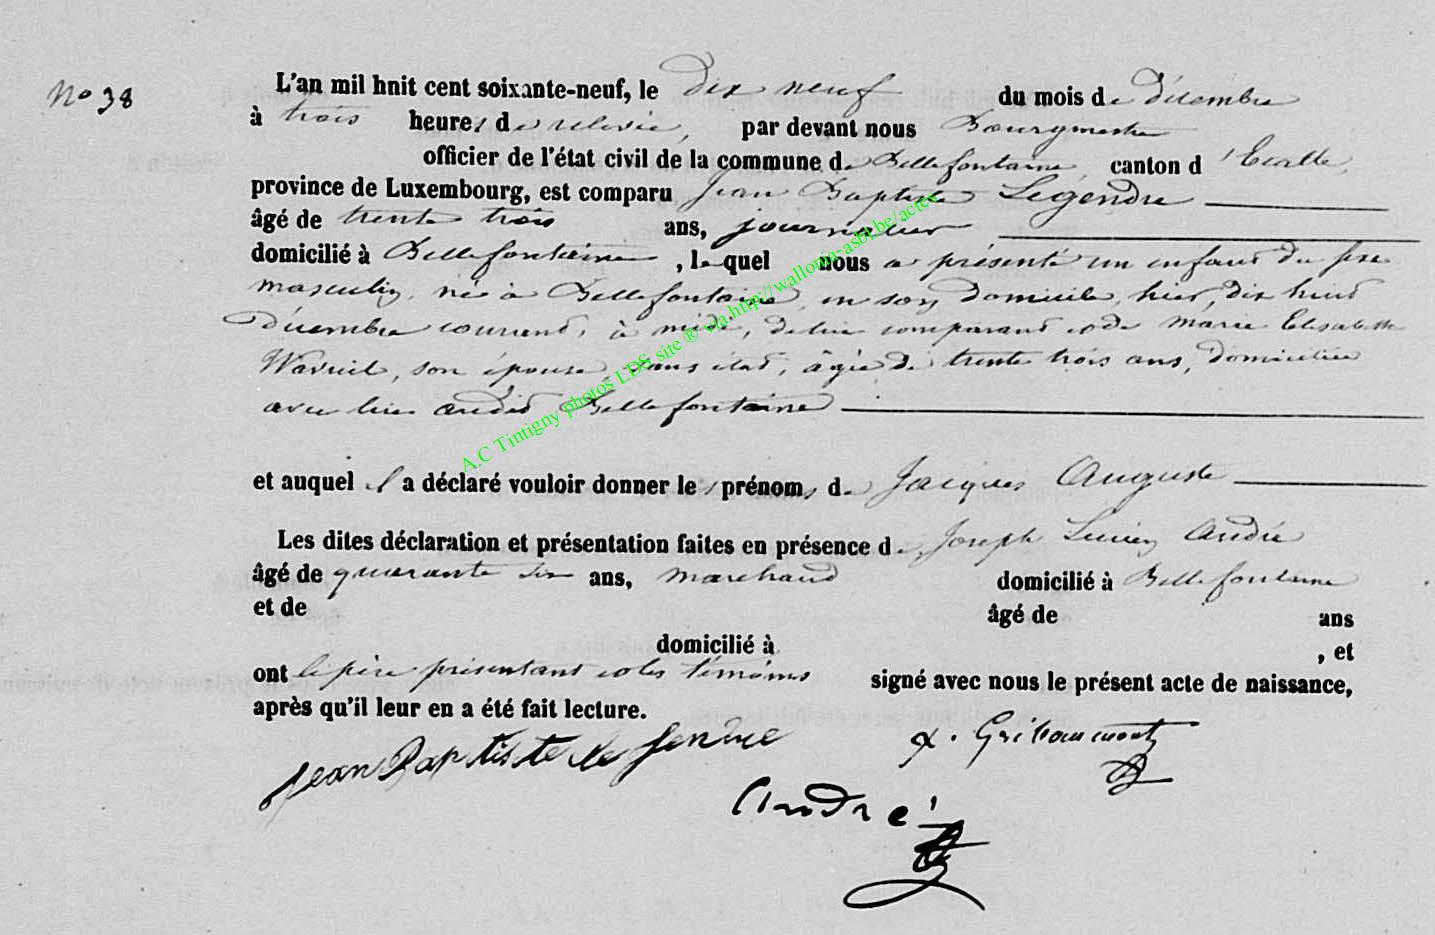 No 38
L'an mil hnit cent soixante-neuf, le dix neuf du mois de décembre
à trois heures de relevée, par devant nous Bourgmestre
officier de l'état civil de la commune de Bellefontaine, canton d'Etalle,
province de Luxembourg, est comparu Jean Baptiste Legendre
âgé de trente trois ans, journalier
domicilié à Bellefontaine, lequel nous a présenté un enfant du sexe
masculin, né à Bellefontaine, en son domicile, hier, dix huit
décembre courant, à midi, de lui comparant et de Marie Elisabeth
son épouse, sans état, âgée de trente trois ans, domiciliée
avec lui audit Bellefontaine
et auquel il a déclaré vouloir donner les prénoms de Jacques Auguste
Les dites déclaration et présentation faites en présence de Joseph Lucien André
âgé de quarante six ans, marchand domicilié à Bellefontaine
et de âgé de ans
domicilié à , et
ont le père présentant et les témoins signé avec nous le présent acte de naissance,
après qu'il leur en a été fait lecture.
Jean Baptiste le Jendre
André
A.C Tintigny photos LDS site ® via http://wallonia-asbl.be/actes